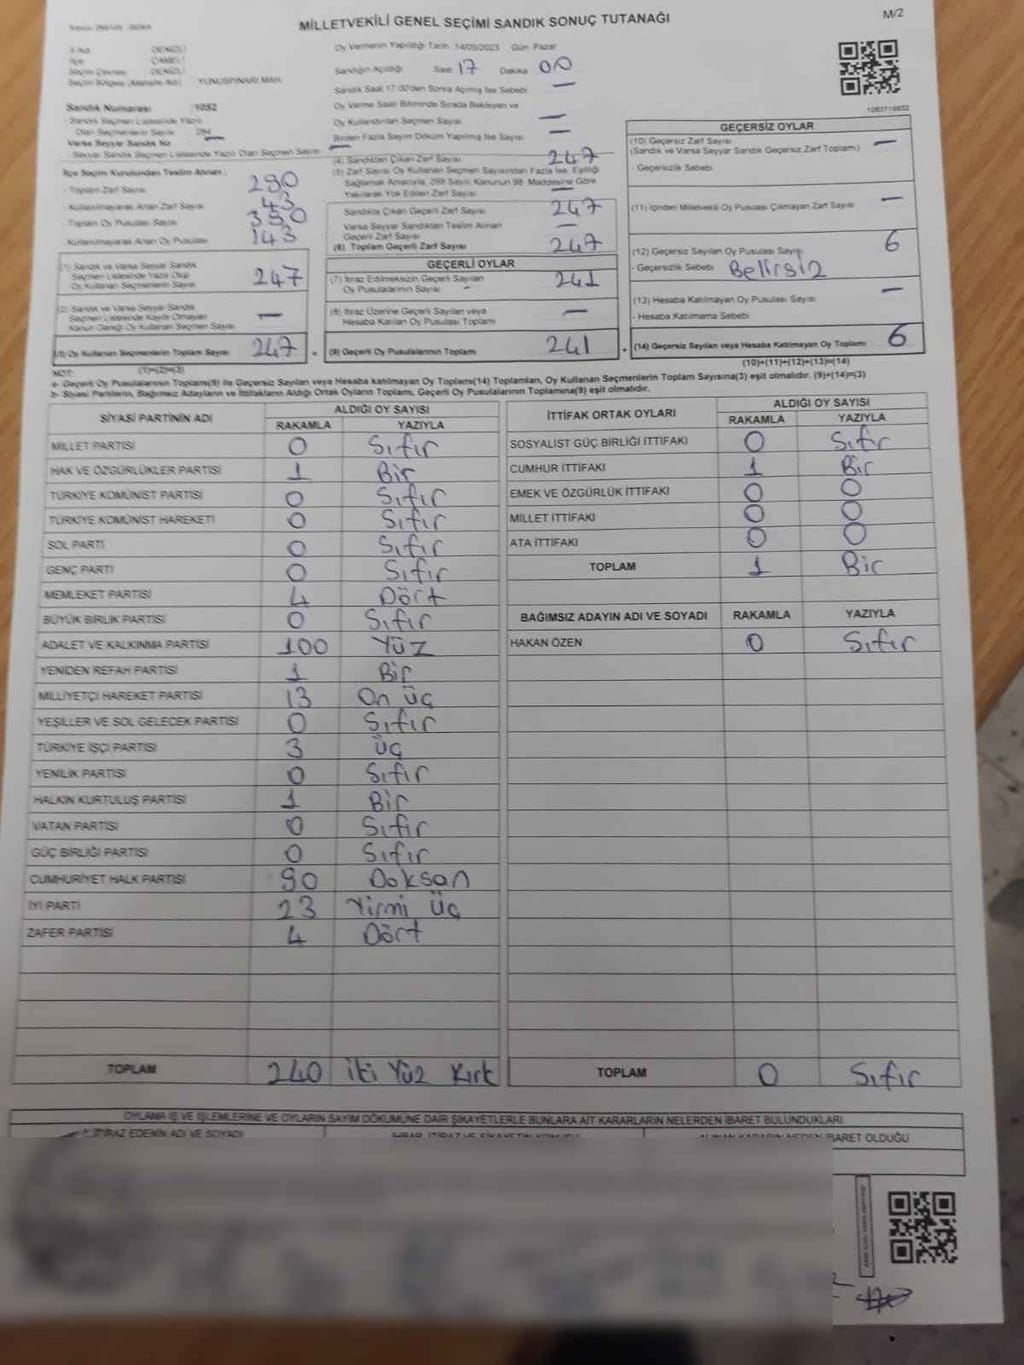 MİLLETVEKİLİ GENEL SEÇİMİ SANDIK SONUÇ TUTANAĞI
M/2
Oy Vermenin Yapıldığı Tarih :14/05/2023 Gün Pazar
Sandığın Açıldığı Saat 17 Dakika 00
Sandık Saat 17:00'den Sonra Açılmış İse Sebebi
Oy Verme Saati Bitiminde Sırada Bekleyen ve
Oy Kullandırılan Seçmen Sayısı
Birden Fazla Sayım Döküm Yapılmış İse Sayısı
İlçe ÇAMELİ
DENİZLİ
YUNUSPINARI MAH.
Sandık Numarası :1052
- Sandık Seçmen Listesinde Yazılı
Olan Seçmenlerin Sayısı
Varsa Seyyar Sandık No
- Seyyar Sandık Seçmen Listesinde Yazılı Olan Seçmen Sayısı
İlçe Seçim Kurulundan Teslim Alınan:
- Toplam Zarf Sayısı 290
- Kullanılmayarak Artan Zarf Sayısı 43
- Toplam Oy Pusulası Sayısı 350
- Kullanılmayarak Artan Oy Pusulası 143
(1) Sandık ve Varsa Seyyar Sandık
Seçmen Listesinde Yazılı Olup
Oy Kullanan Seçmenlerin Sayısı 247
(2) Sandık ve Varsa Seyyar Sandık
Seçmen Listesinde Kayıtlı Olmayan
Kanun Gereği Oy Kullanan Seçmen Sayısı —
(3) Oy Kullanan Seçmenlerin Toplam Sayısı 247
(1)+(2)=(3)
(4) Sandıktan Çıkan Zarf Sayısı 247
(5) Zarf Sayısı Oy Kullanan Seçmen Sayısından Fazla İse, Eşitliği
Sağlamak Amacıyla, 298 Sayılı Kanunun 98. Maddesine Göre
Yakılarak Yok Edilen Zarf Sayısı —
Sandıkta Çıkan Geçerli Zarf Sayısı 247
Varsa Seyyar Sandıktan Teslim Alınan
Geçerli Zarf Sayısı —
(6) Toplam Geçerli Zarf Sayısı 247
GEÇERLİ OYLAR
(7) İtiraz Edilmeksizin Geçerli Sayılan
Oy Pusulalarının Sayısı 241
(8) İtiraz Üzerine Geçerli Sayılan veya
Hesaba Katılan Oy Pusulaları Toplamı —
(9) Geçerli Oy Pusulalarının Toplamı 241
1083718832
GEÇERSİZ OYLAR
(10) Geçersiz Zarf Sayısı —
(Sandık ve Varsa Seyyar Sandık Geçersiz Zarf Toplamı)
- Geçersizlik Sebebi
(11) İçinden Milletvekili Oy Pusulası Çıkmayan Zarf Sayısı —
(12) Geçersiz Sayılan Oy Pusulası Sayısı 6
- Geçersizlik Sebebi Belirsiz
(13) Hesaba Katılmayan Oy Pusulası Sayısı —
- Hesaba Katılmama Sebebi
(14) Geçersiz Sayılan veya Hesaba Katılmayan Oy Toplamı 6
(10)+(11)+(12)+(13)=(14)
NOT:
a- Geçerli Oy Pusulalarının Toplamı(9) ile Geçersiz Sayılan veya Hesaba katılmayan Oy Toplamı(14) Toplamları, Oy Kullanan Seçmenlerin Toplam Sayısına(3) eşit olmalıdır. (9)+(14)=(3)
b- Siyasi Partilerin, Bağımsız Adayların ve İttifakların Aldığı Ortak Oyların Toplamı, Geçerli Oy Pusulalarının Toplamına(9) eşit olmalıdır.
SİYASİ PARTİNİN ADI ALDIĞI OY SAYISI
RAKAMLA YAZIYLA
MİLLET PARTİSİ 0 Sıfır
HAK VE ÖZGÜRLÜKLER PARTİSİ 1 Bir
TÜRKİYE KOMÜNİST PARTİSİ 0 Sıfır
TÜRKİYE KOMÜNİST HAREKETİ 0 Sıfır
SOL PARTİ 0 Sıfır
GENÇ PARTİ 0 Sıfır
MEMLEKET PARTİSİ 4 Dört
BÜYÜK BİRLİK PARTİSİ 0 Sıfır
ADALET VE KALKINMA PARTİSİ 100 Yüz
YENİDEN REFAH PARTİSİ 1 Bir
MİLLİYETÇİ HAREKET PARTİSİ 13 On üç
YEŞİLLER VE SOL GELECEK PARTİSİ 0 Sıfır
TÜRKİYE İŞÇİ PARTİSİ 3 üç
YENİLİK PARTİSİ 0 Sıfır
HALKIN KURTULUŞ PARTİSİ 1 Bir
VATAN PARTİSİ 0 Sıfır
GÜÇ BİRLİĞİ PARTİSİ 0 Sıfır
CUMHURİYET HALK PARTİSİ 90 Doksan
İYİ PARTİ 23 Yirmi üç
ZAFER PARTİSİ 4 Dört
TOPLAM 240 iki Yüz Kırk
İTTİFAK ORTAK OYLARI ALDIĞI OY SAYISI
RAKAMLA YAZIYLA
SOSYALİST GÜÇ BİRLİĞİ İTTİFAKI 0 Sıfır
CUMHUR İTTİFAKI 1 Bir
EMEK VE ÖZGÜRLÜK İTTİFAKI 0 0
MİLLET İTTİFAKI 0 0
ATA İTTİFAKI 0 0
TOPLAM 1 Bir
BAĞIMSIZ ADAYIN ADI VE SOYADI RAKAMLA YAZIYLA
HAKAN ÖZEN 0 Sıfır
TOPLAM 0 Sıfır
OYLAMA İŞ VE İŞLEMLERİNE VE OYLARIN SAYIM DÖKÜMÜNE DAİR ŞİKAYETLERLE BUNLARA AİT KARARLARIN NELERDEN İBARET BULUNDUKLARI
İTİRAZ EDENİN ADI VE SOYADI
İBARET OLDUĞU